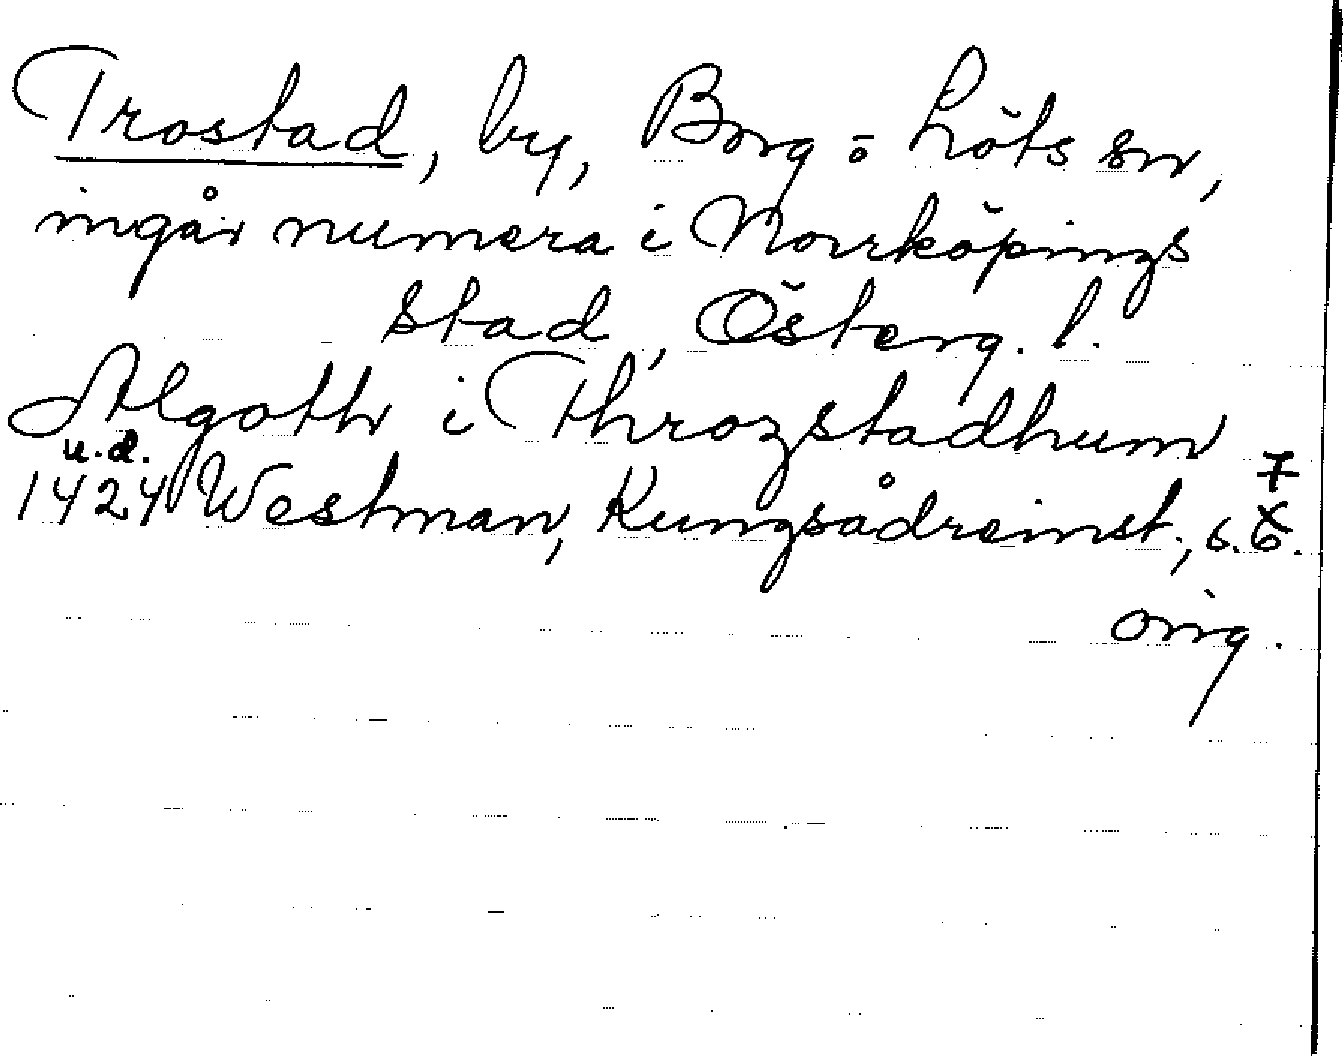 Trostad, by, Borg o Löts sn,
ingår numera i Norrköpings
stad, Österg. l.
Algoth i Throzstadhum
u.d.
1424 Westman, Kungsådreinst., s. 7.
orig.